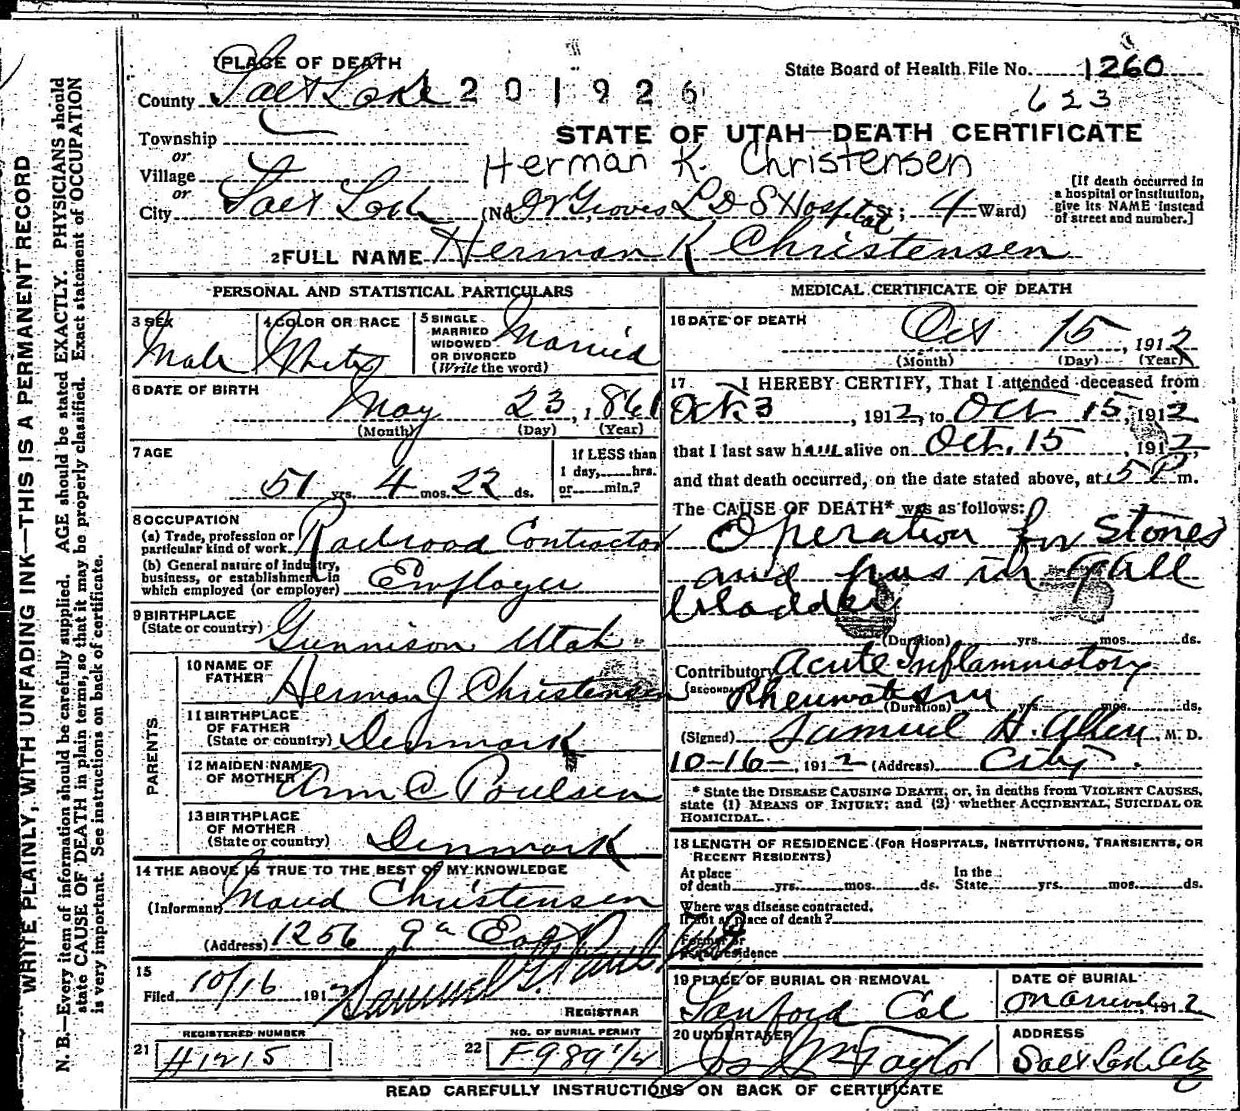 PLACE OF DEATH
State Board of Health File No. 1260
County Salt Lake 201926
623
Township
STATE OF UTAH—DEATH CERTIFICATE
or
Village
Herman K. Christensen
or
City Salt Lake (No. Dr Groves L D S Hospital St; 4 Ward)
[If death occurred in a hospital or institution, give its NAME instead of street and number.]
2 FULL NAME Herman K Christensen
PERSONAL AND STATISTICAL PARTICULARS
3 SEX
Male
4 COLOR OR RACE
White
5 SINGLE
MARRIED
WIDOWED
OR DIVORCED
(Write the word)
Married
6 DATE OF BIRTH
May 23, 1861
(Month) (Day) (Year)
7 AGE
51 yrs. 4 mos. 22 ds.
If LESS than
1 day,......hrs.
or......min.?
8 OCCUPATION
(a) Trade, profession or
particular kind of work. Railroad Contractor
(b) General nature of Industry,
business, or establishment in
which employed (or employer) Employer
9 BIRTHPLACE
(State or country) Gunnison Utah
PARENTS
10 NAME OF
FATHER Herman J Christensen
11 BIRTHPLACE
OF FATHER
(State or country) Denmark
12 MAIDEN NAME
OF MOTHER Ann C Poulsen
13 BIRTHPLACE
OF MOTHER
(State or country) Denmark
14 THE ABOVE IS TRUE TO THE BEST OF MY KNOWLEDGE
(Informant) Maud Christensen
(Address) 1256 9th East
15
Filed 10/16 1912 Samuel G. Paul
REGISTRAR
REGISTERED NUMBER
21 H1215
NO. OF BURIAL PERMIT
22 F989 1/2
MEDICAL CERTIFICATE OF DEATH
16 DATE OF DEATH
Oct 15, 1912
(Month) (Day) (Year)
17 I HEREBY CERTIFY, That I attended deceased from
Oct. 3, 1912, to Oct 15, 1912
that I last saw him alive on Oct. 15, 1912,
and that death occurred, on the date stated above, at 5 P. m.
The CAUSE OF DEATH* was as follows:
Operation for stones
and pus in Gall
bladder
(Duration) yrs. mos. ds.
Contributory Acute Inflammatory
(SECONDARY) Rheumatism
(Duration) yrs. mos. ds.
(Signed) Samuel H. Allen, M. D.
10-16-, 1912 (Address) City.
* State the DISEASE CAUSING DEATH; or, in deaths from VIOLENT CAUSES,
state (1) MEANS OF INJURY; and (2) whether ACCIDENTAL, SUICIDAL OR
HOMICIDAL.
18 LENGTH OF RESIDENCE (FOR HOSPITALS, INSTITUTIONS, TRANSIENTS, OR
RECENT RESIDENTS)
At place
of death......yrs......mos......ds.
In the
State......yrs......mos......ds.
Where was disease contracted,
If not at place of death?
Former or
usual residence
19 PLACE OF BURIAL OR REMOVAL
Sanford Col
DATE OF BURIAL
1912
20 UNDERTAKER
Jos Wm Taylor
ADDRESS
Salt Lake City
READ CAREFULLY INSTRUCTIONS ON BACK OF CERTIFICATE
WRITE PLAINLY, WITH UNFADING INK—THIS IS A PERMANENT RECORD
N. B.—Every item of information should be carefully supplied. AGE should be stated EXACTLY. PHYSICIANS should
state CAUSE OF DEATH in plain terms, so that it may be properly classified. Exact statement of OCCUPATION
is very important. See instructions on back of certificate.